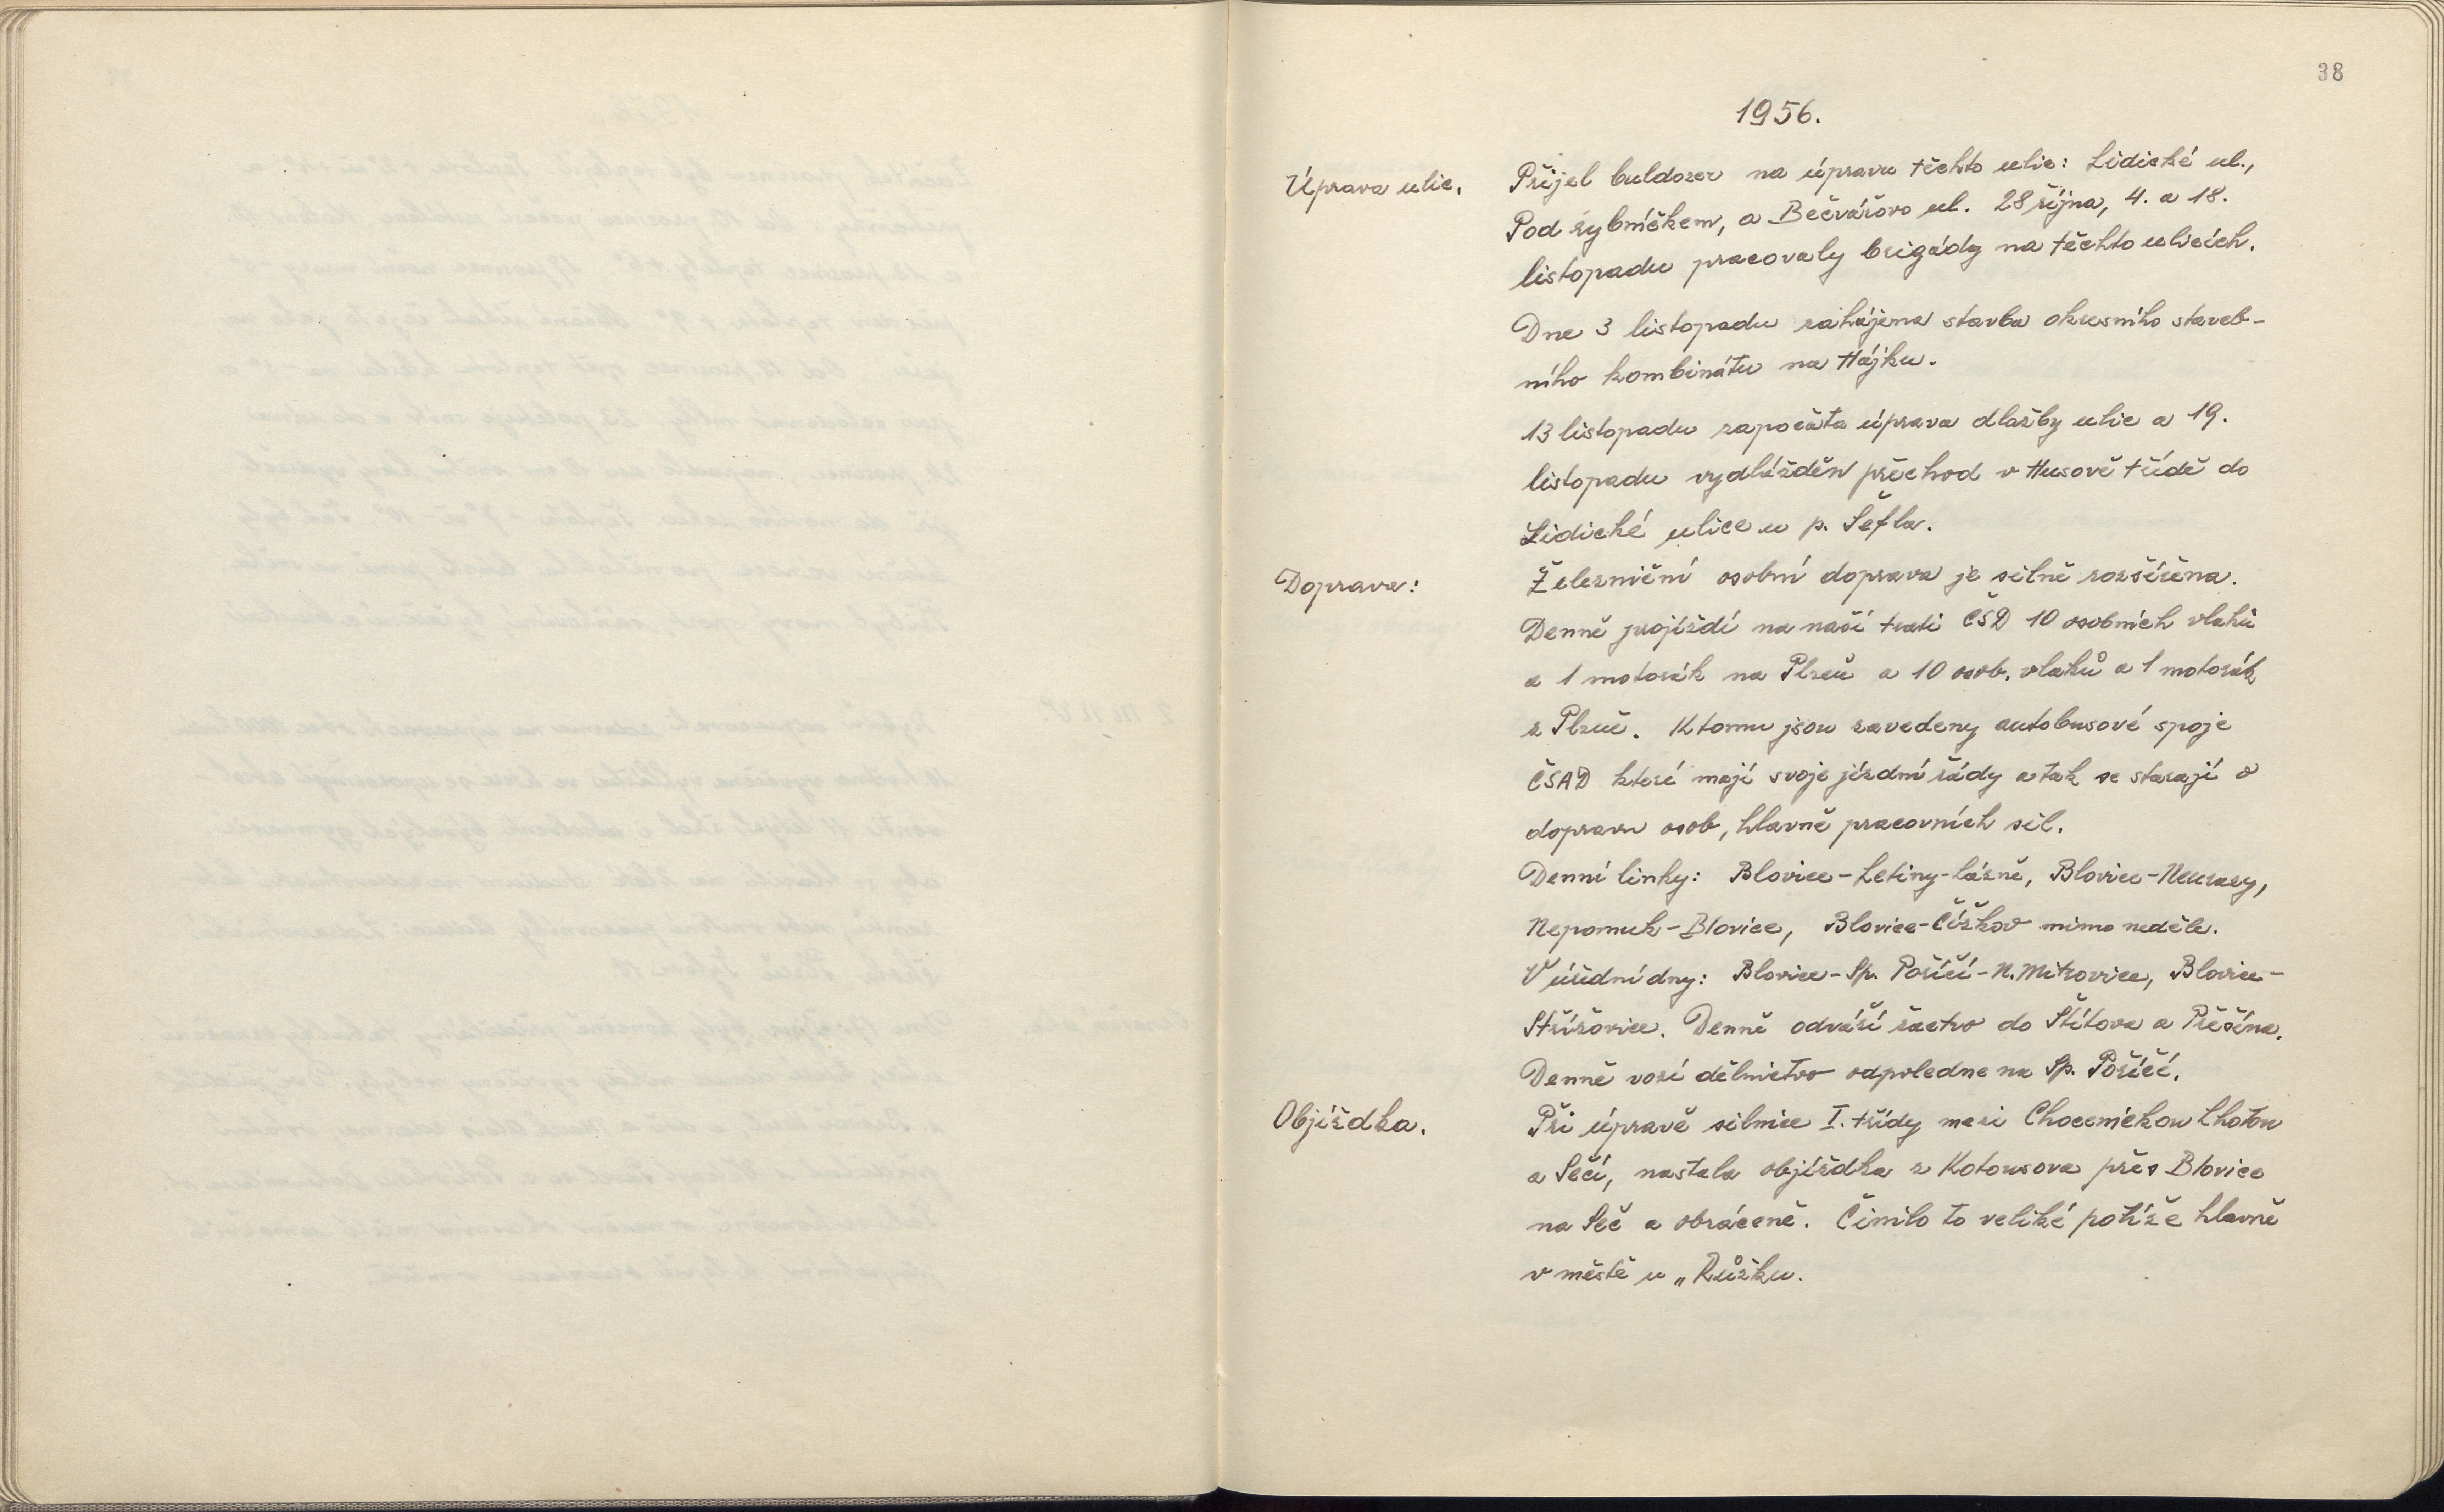 38
1956.
Úprava ulic.
Přijel buldozer na úpravu těchto ulic: Lidické ul.,
Pod rybníčkem, a Bečvářovo ul. 28 října, 4. a 18.
listopadu pracovaly brigády na těchto ulicích.
Dne 3 listopadu zahájena stavba okresního staveb-
ního kombinátu na Hájku.
13 listopadu započata úprava dlažby ulic a 19.
listopadu vydlážděn přechod v Husově třídě do
Lidické ulice u p. Šefla.
Doprava:
Železniční osobní doprava je silně rozšířena.
Denně projíždí na naší trati ČSD 10 osobních vlaků
a 1 motorák na Plzeň a 10 osob. vlaků a 1 motorák
z Plzně. K tomu jsou zavedeny autobusové spoje
ČSAD které mají svoje jízdní řády a tak se starají o
dopravu osob, hlavně pracovních sil.
Denní linky: Blovice-Letiny-lázně, Blovice-Neurazy,
Nepomuk-Blovice, Blovice-Čížkov mimo neděle.
V úřední dny: Blovice-Sp. Poříčí-N. Mitrovice, Blovice-
Střížovice. Denně odváží žactvo do Štítova a Přešína.
Denně vozí dělnictvo odpoledne na Sp. Poříčí.
Objížďka.
Při úpravě silnice I. třídy mezi Chocenickou Lhotou
a Sečí, nastala objížďka z Kotousova přes Blovice
na Seč a obráceně. Činilo to veliké potíže hlavně
v městě u „Růžku.